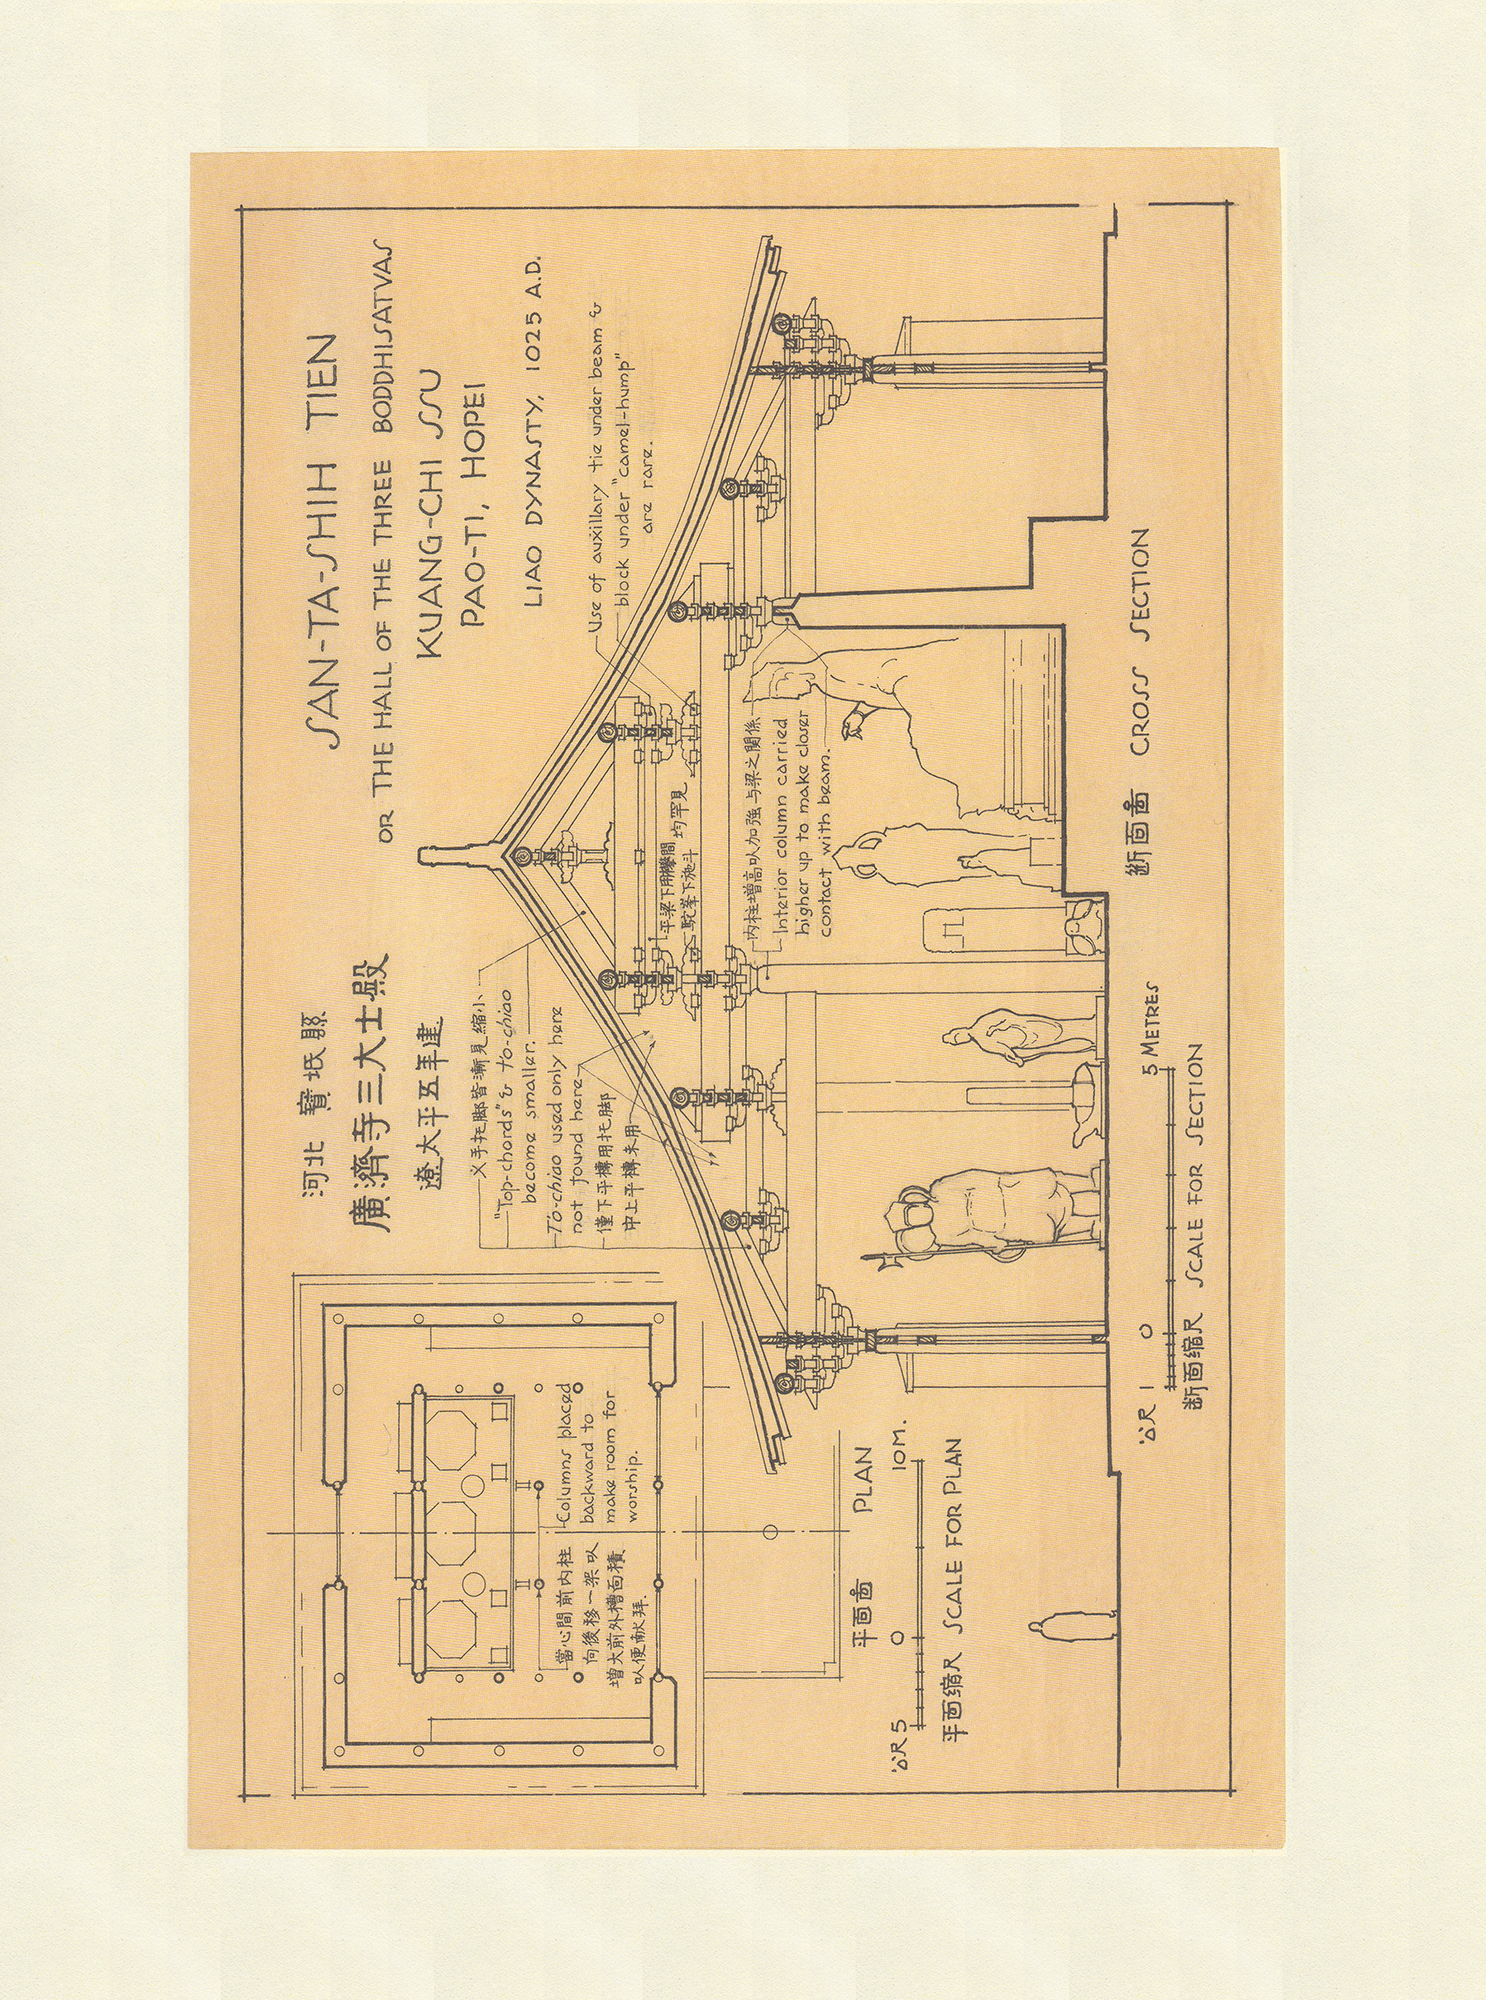 河北 寶坻縣
廣濟寺三大士殿
遼太平五年建.
SAN-TA-SHIH TIEN
OR THE HALL OF THE THREE BODDHISATVAS
KUANG-CHI SSU
PAO-TI, HOPEI
LIAO DYNASTY, 1025 A.D.
Use of auxillary tie under beam &
block under "camel-hump"
are rare.
义手托脚皆漸見縮小
"Top-chords" & t'o-chiao
become smaller.
T'o-chiao used only here
not found here
僅下平槫用托脚
中上平槫未用
平梁下用攀間
駝峯下施斗
均罕見
内柱增高以加強与梁之関係
Interior column carried
higher up to make closer
contact with beam.
當心間前内柱
向後移一架以
增大前外槽面積
以便献拜.
Columns placed
backward to
make room for
worship.
平面圖 PLAN
公尺 5 0 10 M.
平面缩尺 SCALE FOR PLAN
断面圖 CROSS SECTION
公尺 1 0 5 METRES
断面缩尺 SCALE FOR SECTION